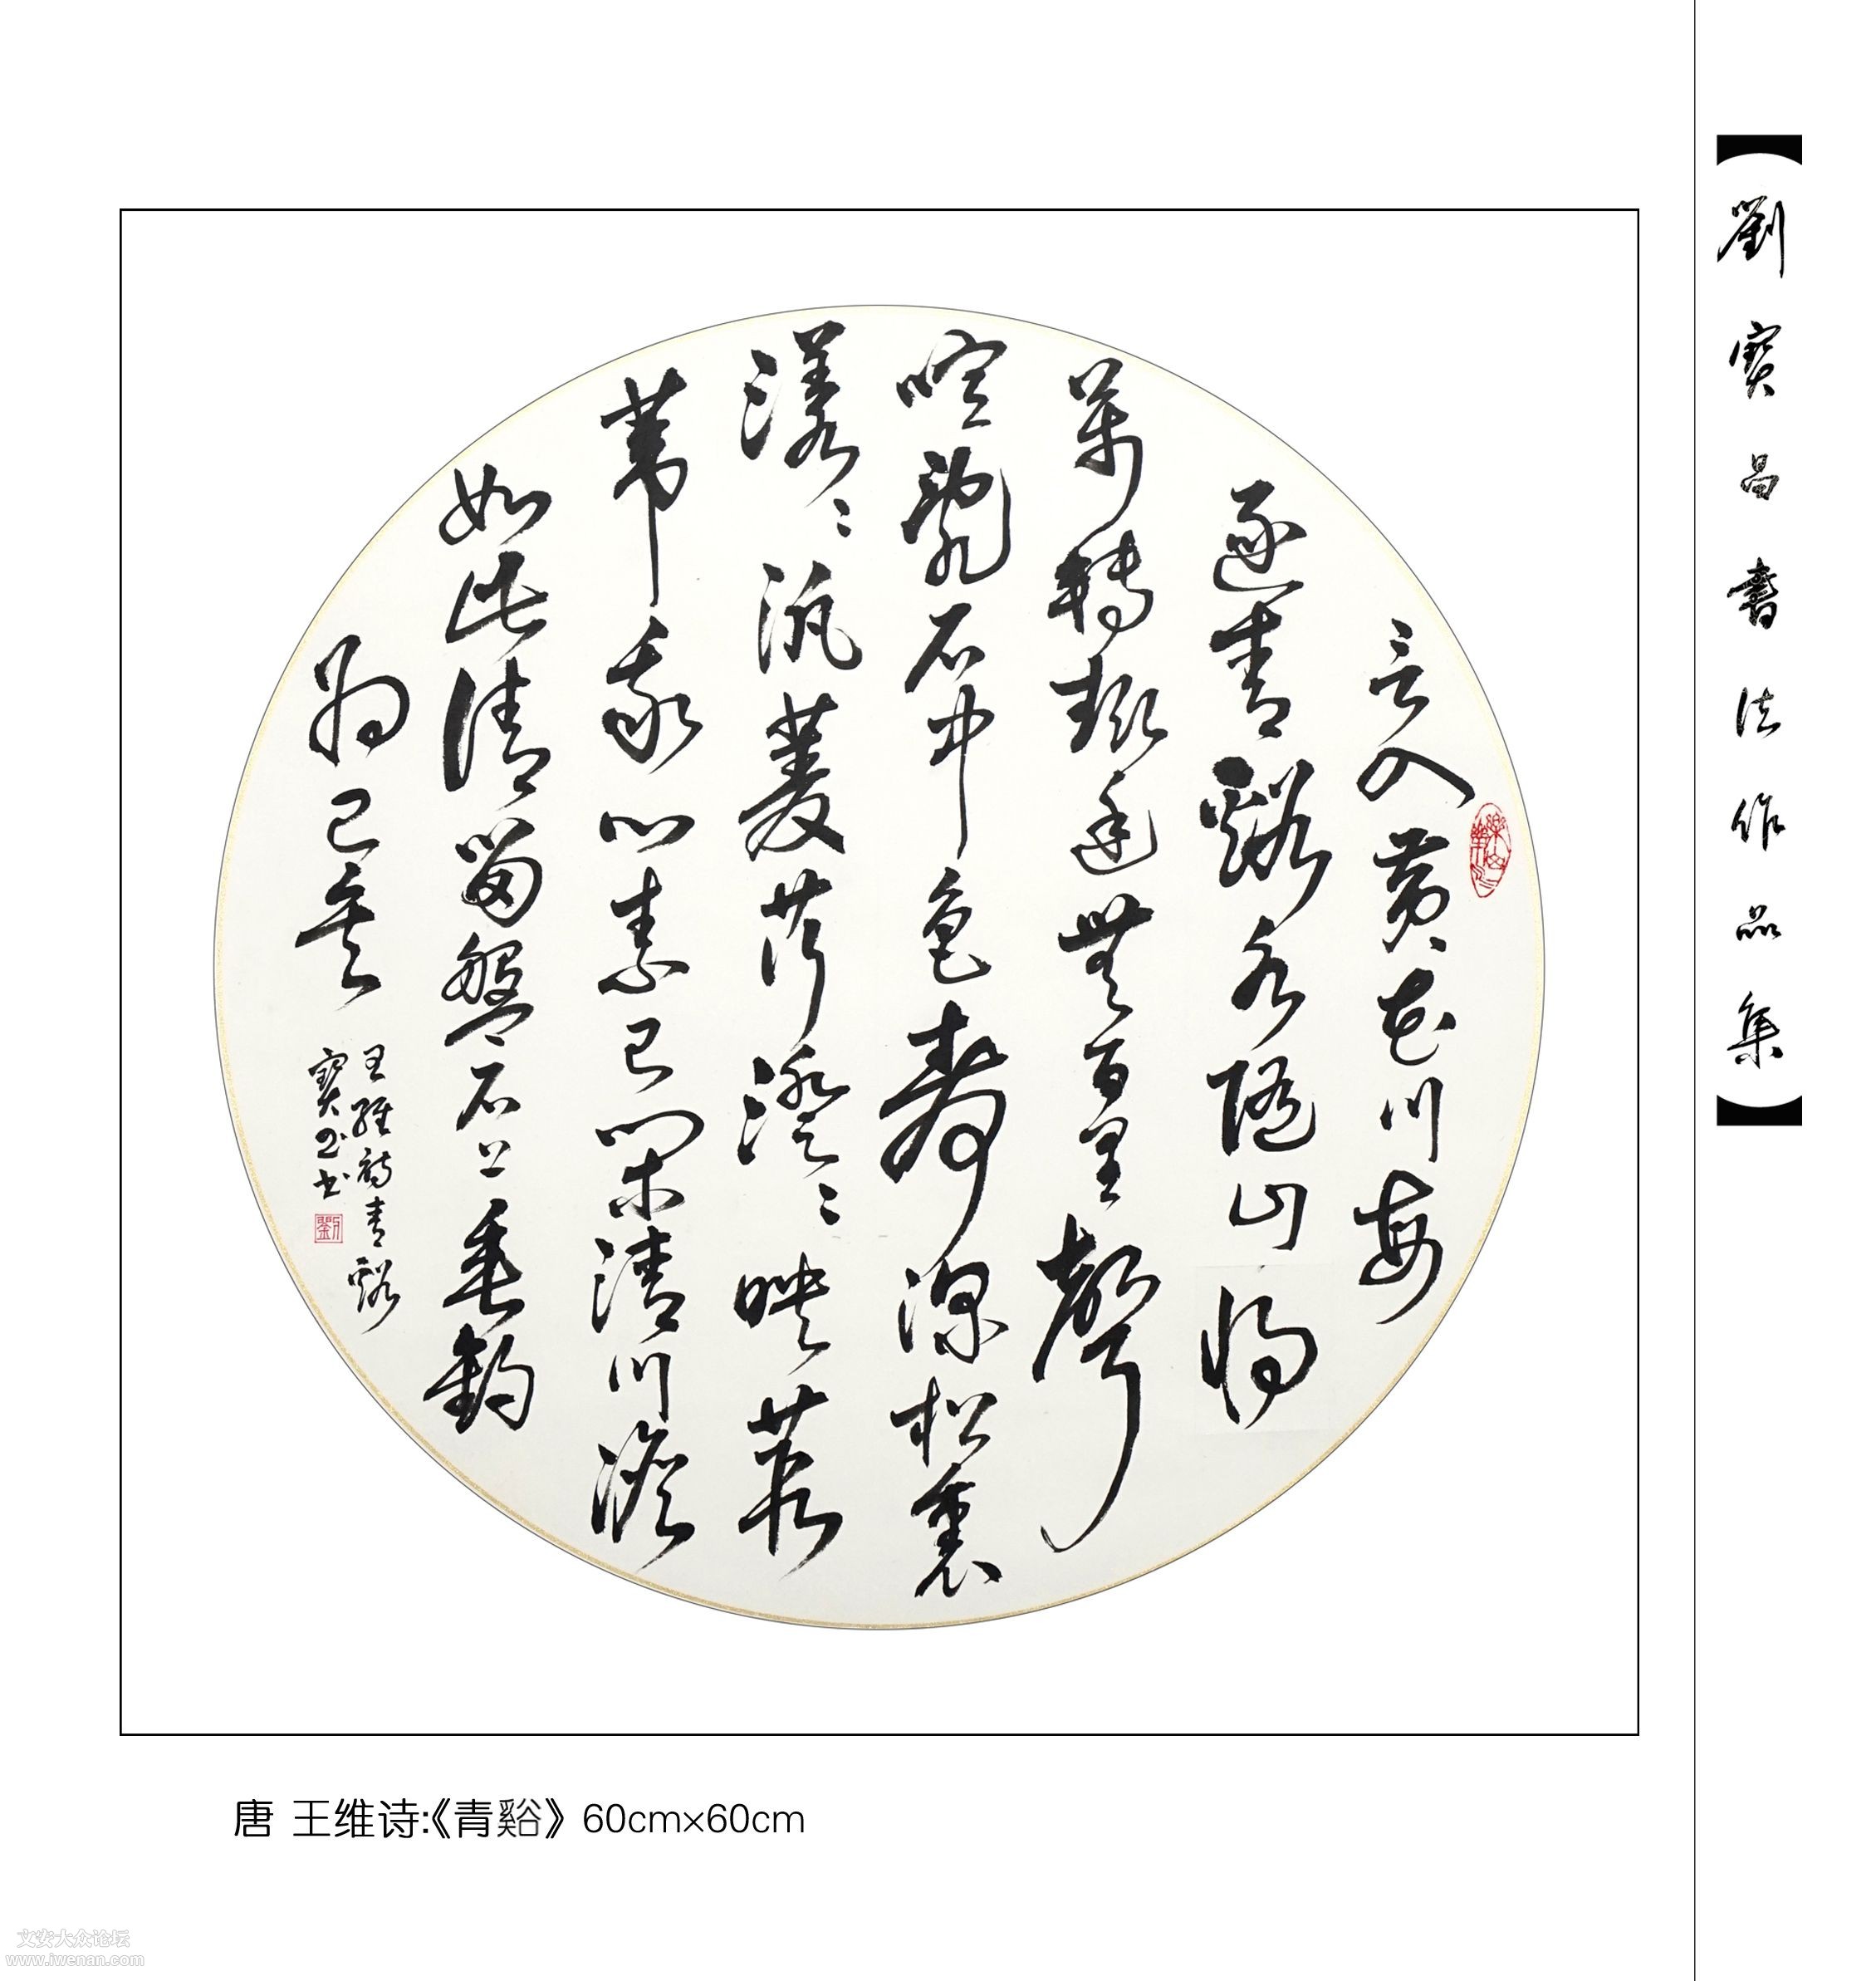 【劉寶昌書法作品集】
言入黃花川每
逐青谿水隨山將
萬轉趣途無百里聲
喧亂石中色靜深松裏
漾〻汎菱荇澄〻映葭
葦我心素已閑清川澹
如此請留盤石上垂釣
將已矣
王維詩青谿
寶昌书
劉
唐 王维诗:《青谿》 60cm×60cm
文安大众论坛
www.iwenan.com